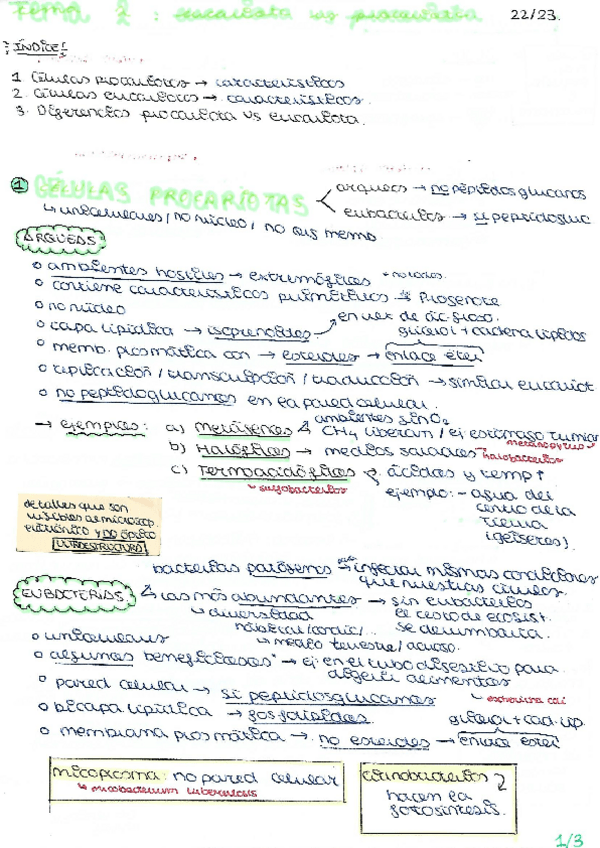 Tema 2: eucariota vs procariota 22/23.
¡ÍNDICE!
1 Células procariotas → características
2. Células eucariotas → características.
3. Diferencias procariota vs eucariota.
① CÉLULAS PROCARIOTAS
arqueas → no peptidoglucanos
eubacterias → si peptidogluc
↳ unicelulares / no núcleo / no org memb
ARQUEAS
o ambientes hostiles → extremófilas
o contiene características primitivas
o no núcleo en vez de ác. graso.
o capa lipídica → isoprenoides glicerol + cadena lípidos
o memb. plasmática con → esteroides → enlace éter
o replicación / transcripción / traducción → similar eucariot
o no peptidoglucanos en la pared celular.
→ ejemplos: a) Metanógenas ambientes sin O₂
CH₄ liberan / ej estómago
b) Halófilas → medios salados
halobacterias
c) Termoacidófilas ácidas y temp ↑
sulfobacterias
ejemplo: - agua del
centro de la
tierra
(géiseres).
detalles que son
visibles al microscop.
electrónico y NO óptico
ULTRAESTRUCTURA
bacterias patógenas → infectar mismas condiciones
que nuestras células.
EUBACTERIAS
las más abundantes → sin eubacterias
el resto de ecosist.
se derrumbaría.
↳ diversidad
↳ medio terrestre / acuoso.
o unicelulares
o algunas beneficiosas → ej en el tubo digestivo para
digerir alimentos
o pared celular → si peptidoglucanos
↳ escherichia coli
o bicapa lipídica → fosfolípidos glicerol + cad. lip.
o membrana plasmática → no esteroides → enlace éster
micoplasma: no pared celular
↳ micobacterium tuberculosis
cianobacterias
hacen la
fotosíntesis.
1/3